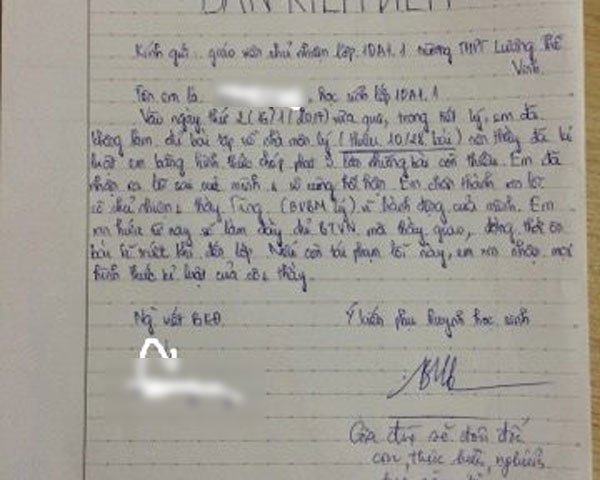 BẢN KIỂM ĐIỂM
Kính gửi: giáo viên chủ nhiệm lớp 10A1.1 trường THPT Lương Thế
Vinh.
Tên em là , học sinh lớp 10A1.1
Vào ngày thứ 2 (16/1/2017) vừa qua, trong tiết lý, em đã
không làm đủ bài tập về nhà môn lý (thiếu 10/28 bài) nên thầy đã kỉ
luật em bằng hình thức chép phạt 5 lần những bài còn thiếu. Em đã
nhận ra lỗi sai của mình & vô cùng hối hận. Em chân thành xin lỗi
cô chủ nhiệm & thầy Tùng (GVBM lý) vì hành động của mình. Em
xin hứa từ nay sẽ làm đầy đủ BTVN mà thầy giao, đồng thời ôn
bài kĩ trước khi đến lớp. Nếu còn tái phạm lỗi này, em xin nhận mọi
hình thức kỉ luật của cô & thầy.
Ng` viết BKĐ
Ý kiến phụ huynh học sinh
Gia đình sẽ đôn đốc
con, thực hiện, nghiêm